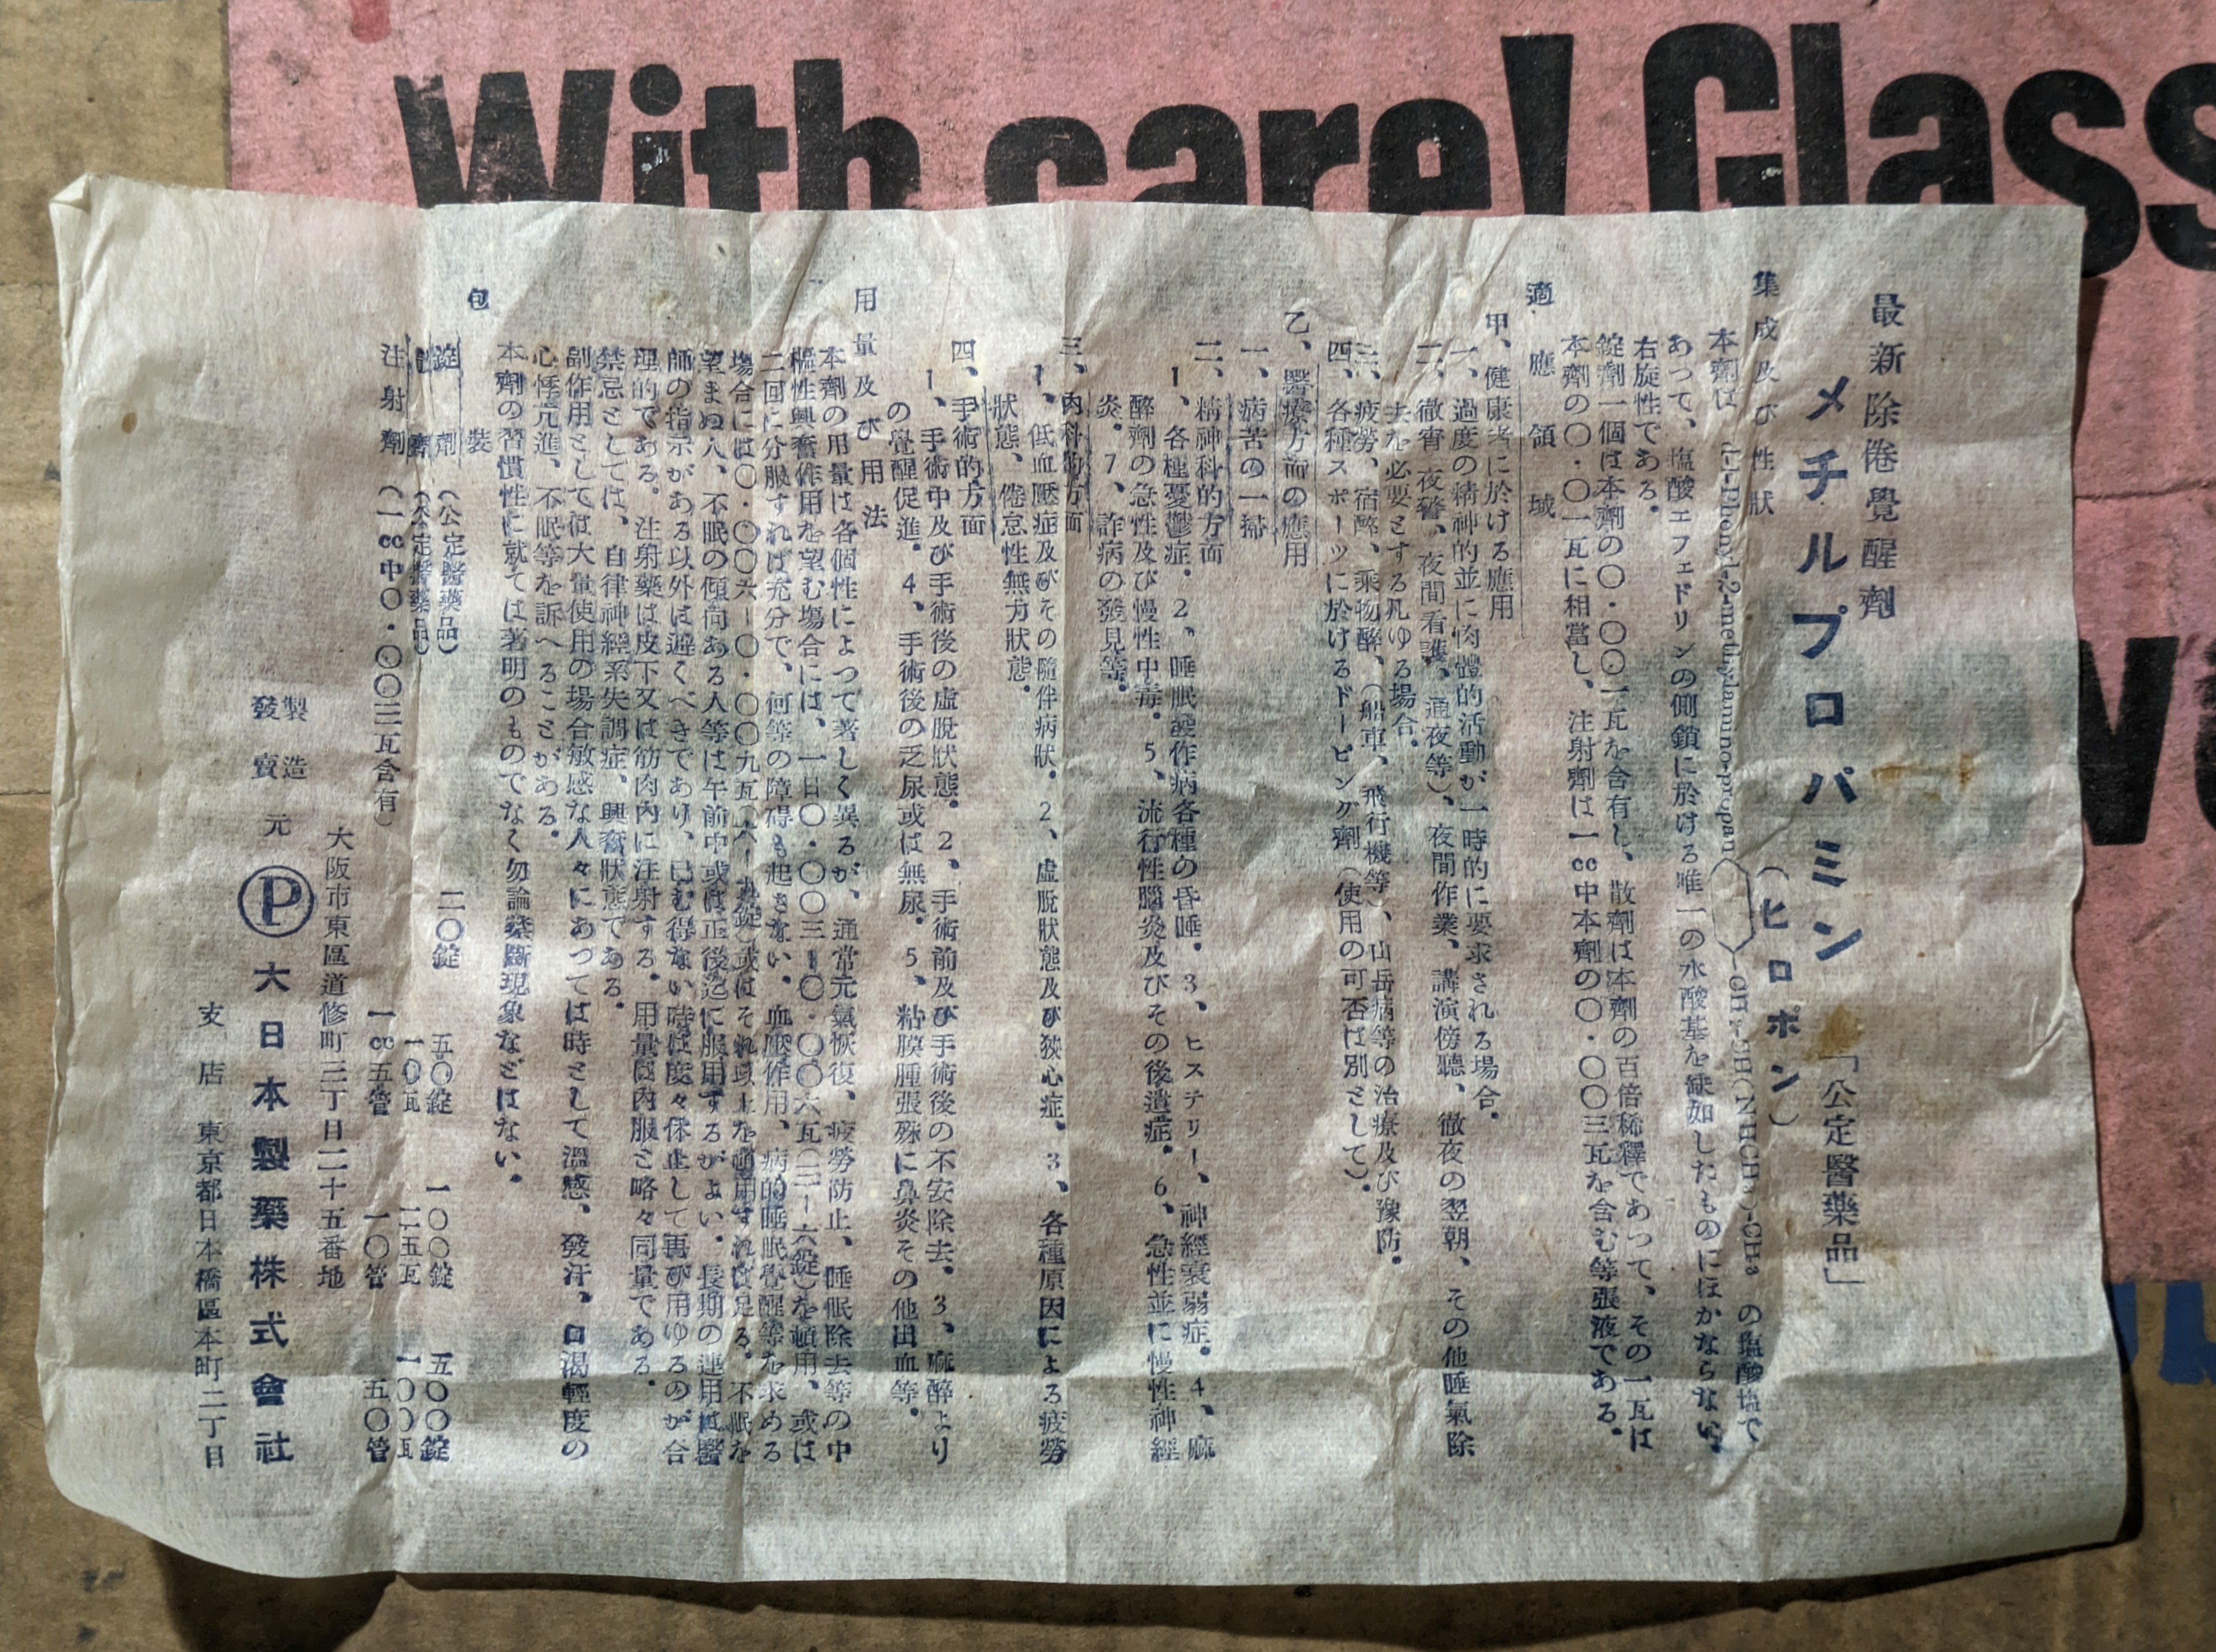 With care! Glass
最新除倦覺醒劑
メチルプロパミン「公定醫藥品」
(ヒロポン)
集成及び性狀
本劑は d-1-Phenyl-2-methylamino-propan の塩酸塩で
あつて、塩酸エフェドリンの側鎖に於ける唯一の水酸基を缺如したものにほかならない、
右旋性である。
錠劑一個は本劑の〇・〇〇一瓦を含有し、散劑は本劑の百倍稀釋であつて、その一瓦は
本劑の〇・〇一瓦に相當し、注射劑は一cc中本劑の〇・〇〇三瓦を含む等張液である。
適應領域
甲、健康者に於ける應用
一、過度の精神的並に肉體的活動が一時的に要求される場合。
二、徹宵(夜警、夜間看護、通夜等)、夜間作業、講演傍聽、徹夜の翌朝、その他睡氣除
去を必要とする凡ゆる場合。
三、疲勞、宿醉、乘物醉、(船車、飛行機等)、山岳病等の治療及び豫防。
四、各種スポーツに於けるドーピング劑(使用の可否は別として)。
乙、醫療方面の應用
一、病苦の一掃
二、精神科的方面
1、各種憂鬱症。2、睡眠發作病各種の昏睡。3、ヒステリー、神經衰弱症。4、麻
醉劑の急性及び慢性中毒。5、流行性腦炎及びその後遺症。6、急性並に慢性神經
炎。7、詐病の發見等。
三、內科的方面
1、低血壓症及びその隨伴病狀。2、虛脫狀態及び狹心症、3、各種原因による疲勞
狀態、倦怠性無力狀態。
四、手術的方面
1、手術中及び手術後の虛脫狀態。2、手術前及び手術後の不安除去。3、麻醉より
の覺醒促進。4、手術後の乏尿或は無尿。5、粘膜腫張殊に鼻炎その他出血等。
用量及び用法
本劑の用量は各個性によつて著しく異るが、通常元氣恢復、疲勞防止、睡眠除去等の中
樞性興奮作用を望む場合には、一日〇・〇〇三―〇・〇〇六瓦(三―六錠)を頓用、或は
二回に分服すれば充分で、何等の障碍も起さない。血壓作用、病的睡眠覺醒等を求める
場合には〇・〇〇六―〇・〇〇九瓦(六―九錠)或はそれ以上を頓用すれば足る。不眠を
望まぬ人、不眠の傾向ある人等は午前中或は正後迄に服用するがよい。長期の連用は醫
師の指示がある以外は避くべきであり、已む得ない時は度々休止して再び用ゆるのが合
理的である。注射藥は皮下又は筋肉內に注射する。用量は內服と略々同量である。
禁忌としては、自律神經系失調症、興奮狀態である。
副作用としては大量使用の場合敏感な人々にあつては時として溫感、發汗、口渴輕度の
心悸亢進、不眠等を訴へることがある。
本劑の習慣性に就ては著明のものでなく勿論禁斷現象などはない。
包裝
錠劑(公定醫藥品)二〇錠 五〇錠 一〇〇錠 五〇〇錠
散劑(公定醫藥品)一〇瓦 二五瓦 一〇〇瓦
注射劑(一cc中〇・〇〇三瓦含有)一cc五管 一〇管 五〇管
大阪市東區道修町三丁目二十五番地
製造
發賣元 Ⓟ 大日本製藥株式會社
支店 東京都日本橋區本町二丁目